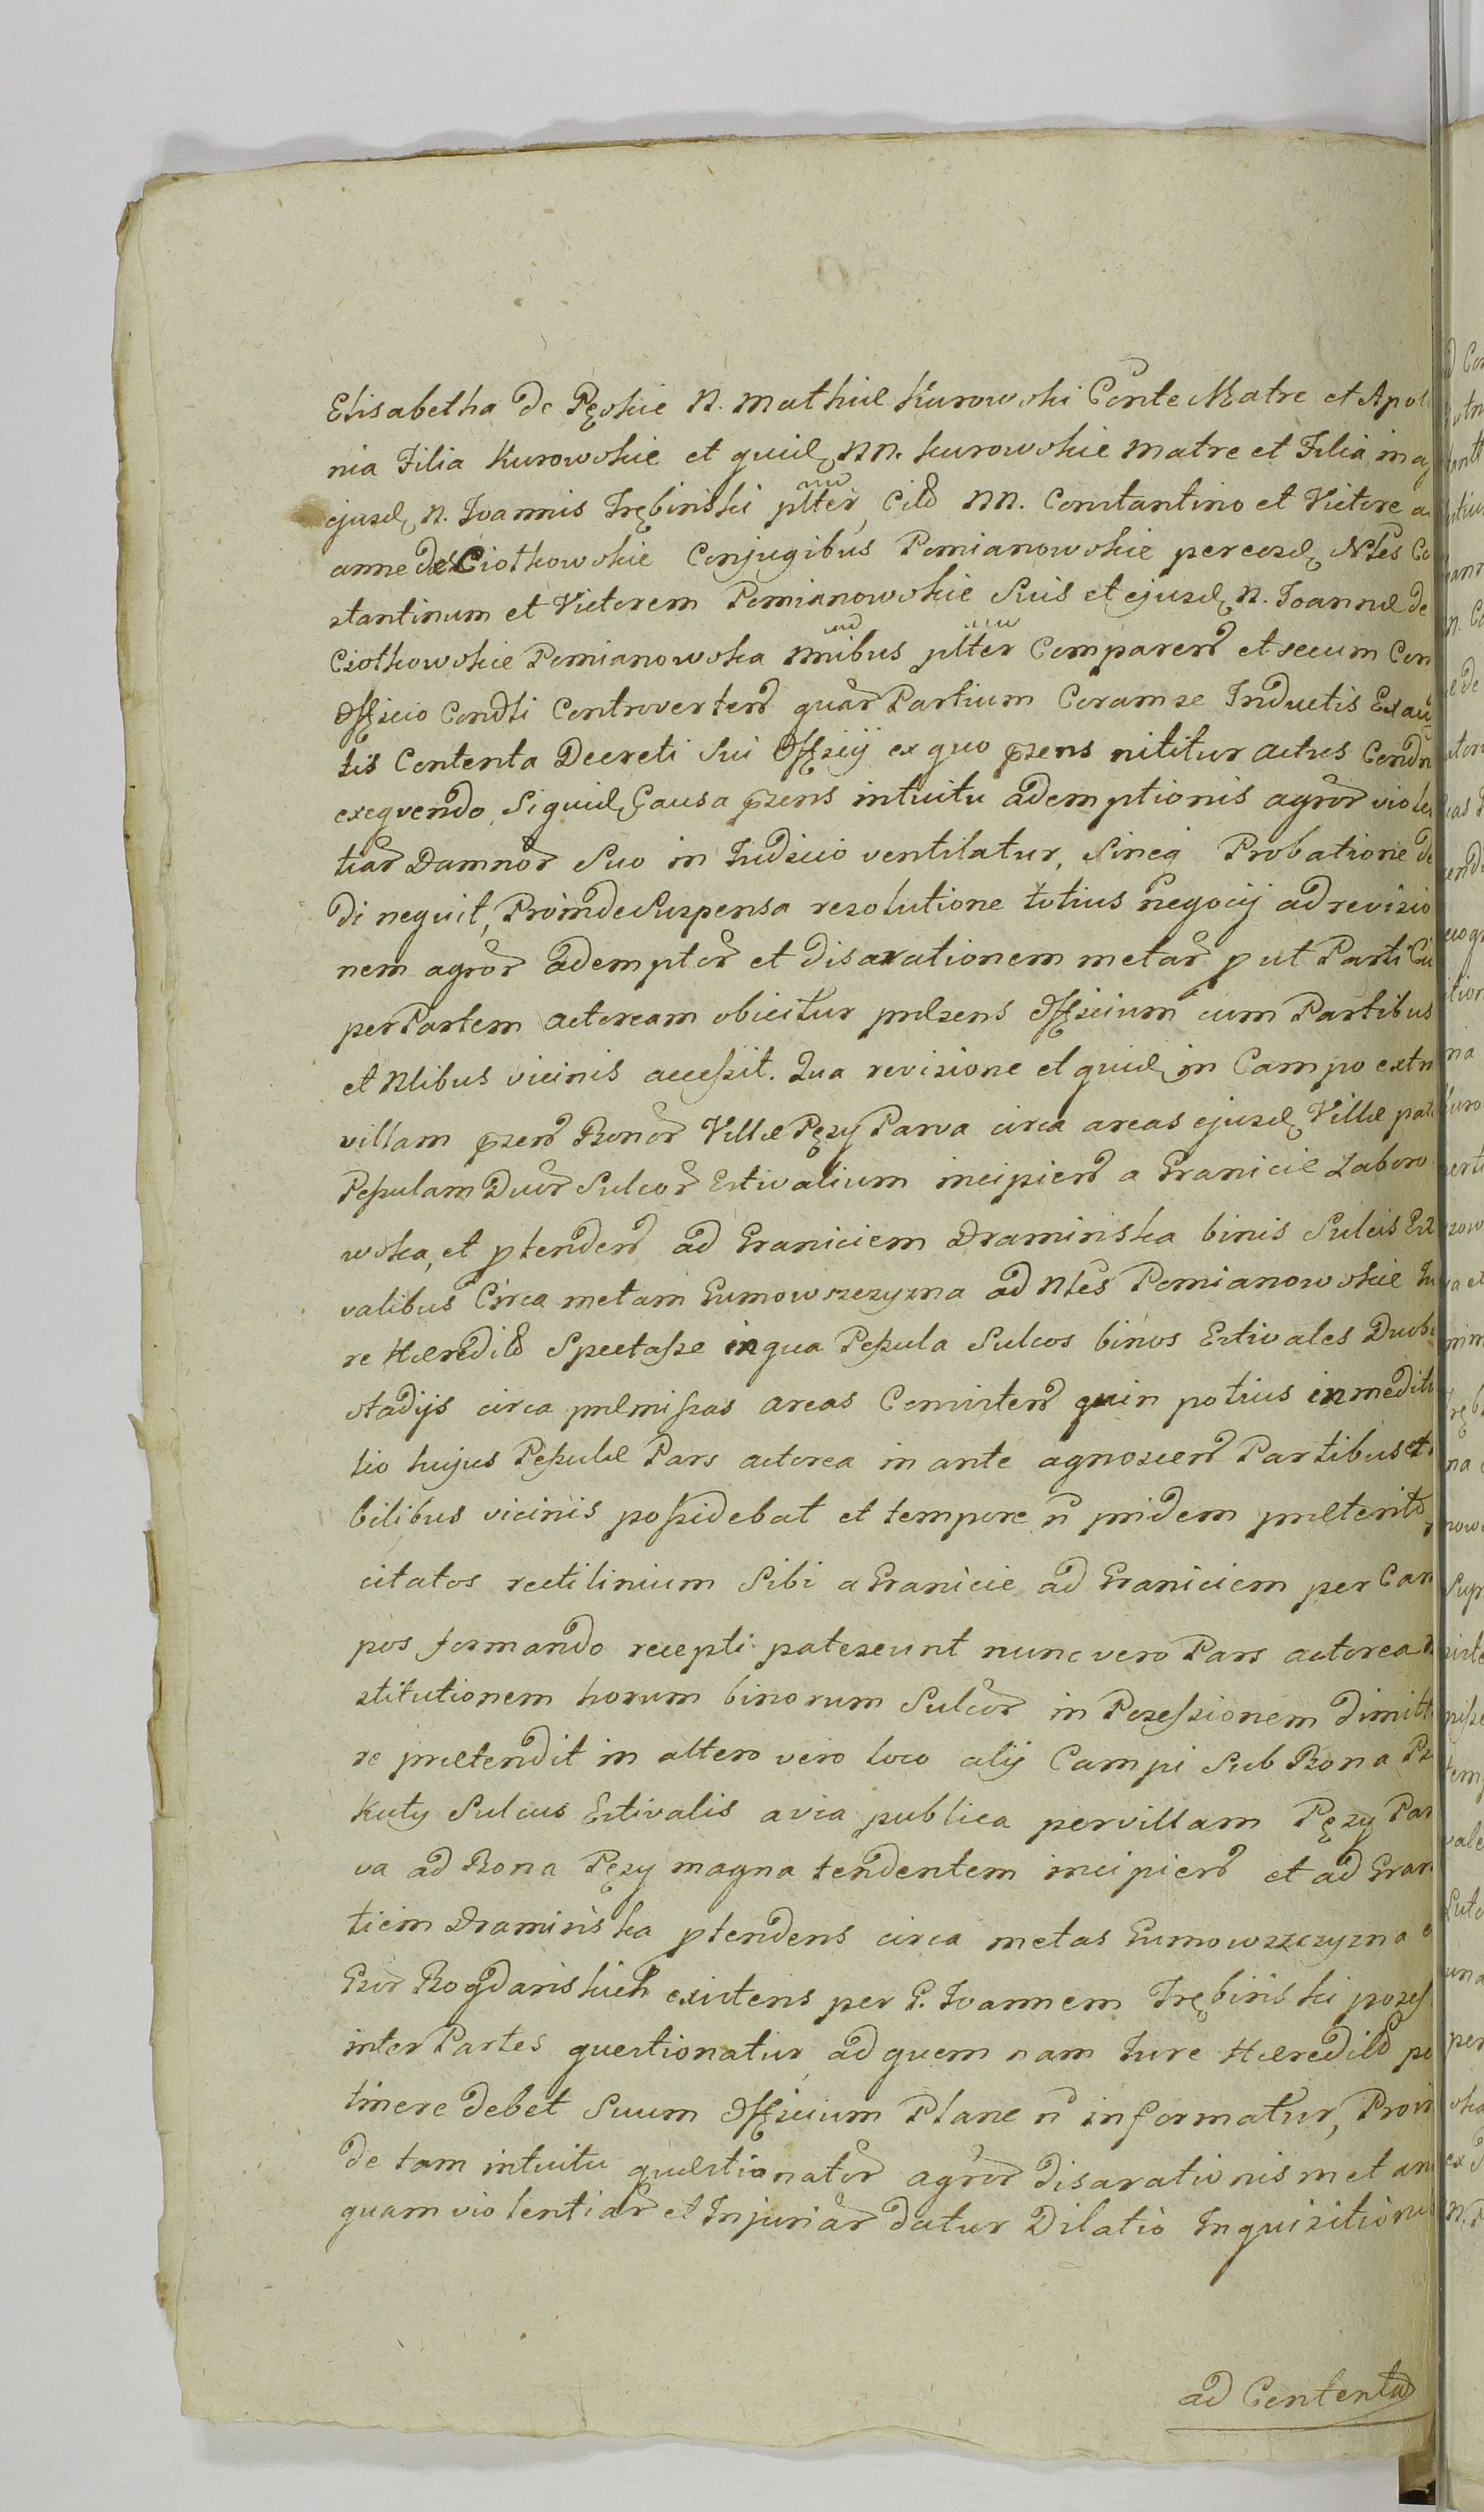 Elisabetha de Pęskie N. Mathiæ Kurowski Conte Matre et Apol
nia Filia Kurowskie et quid NN. Kurowskie Matre et Filia in
ejusd N. Ioannis Trębiński pltter, Citt NN. Constantino et Victore
anne de Ciotkowskie Conjugibus Pomianowskie per eosd Nles Co
stantinum et Victorem Pomianowskie Suis et ejusd N. Joannæ de
Ciotkowskie Pomianowska nnibus pltter Comparen et secum Con
Officio Condti Controverten quar Partium Coram se Inductis Exau
tis Contenta Decreti Sui Officij ex quo pzens nititur actus Condn
exequendo, Siquid Causa pzens intuitu ademptionis agror viole
tiar Damnor Suo in Iudicio ventilatur, Sineq Probatione de
di nequit, Proinde Suspensa resolutione totius Negocij ad revisio
nem agror ademptor et disarationem metar put Parti Ci
per Partem actoream obicitur præsens Officium cum Partibus
et Nlibus vicinis accessit. Qua revisione et quid in Campo extra
villam pzen Bonor Villæ Pęzy Parva circa areas ejusd Villæ pat
Pessulam Duor Sulcor Estivalium incipien a Granicie Zaboro
wska, et ptenden ad Graniciem Dramińska binis Sulcis Est
valibus Circa metam Gumowszczyzna ad Nles Pomianowskie Iu
re Hæredit Spectasse in qua Pessula Sulcos binos Estivales Duob
stadijs circa præmissas areas Consisten quin potius in medit
tio hujus Pessulæ Pars actorea in ante agnoscen Partibus et
bilibus vicinis possidebat et tempore n pridem præterito
citatos rectilinium Sibi a Granicie ad Graniciem per Cam
pos formando recepti patescunt nunc vero Pars actorea
stitutionem horum binorum Sulcor in Possessionem dimitt
re prætendit in altero vero loco alij Campi Sub Bona
Kuty Sulcus Estivalis a via publica per villam Pęzy Par
va ad Bona Pęzy magna tendentem incipien et ad Gran
tiem Dramińska ptendens circa metas Gumowszczyzna
Gsor Bogdańskich existens per G. Ioannem Trębiński posess
inter Partes questionatur, ad quem nam Iure Hæredit pe
tinere debet Suum Officium Plane n informatur, Proin
de tam intuitu quæstionator agror disarationis metar
quam violentiar et Injuriar datur Dilatio Inquisitionu
ad Contenta